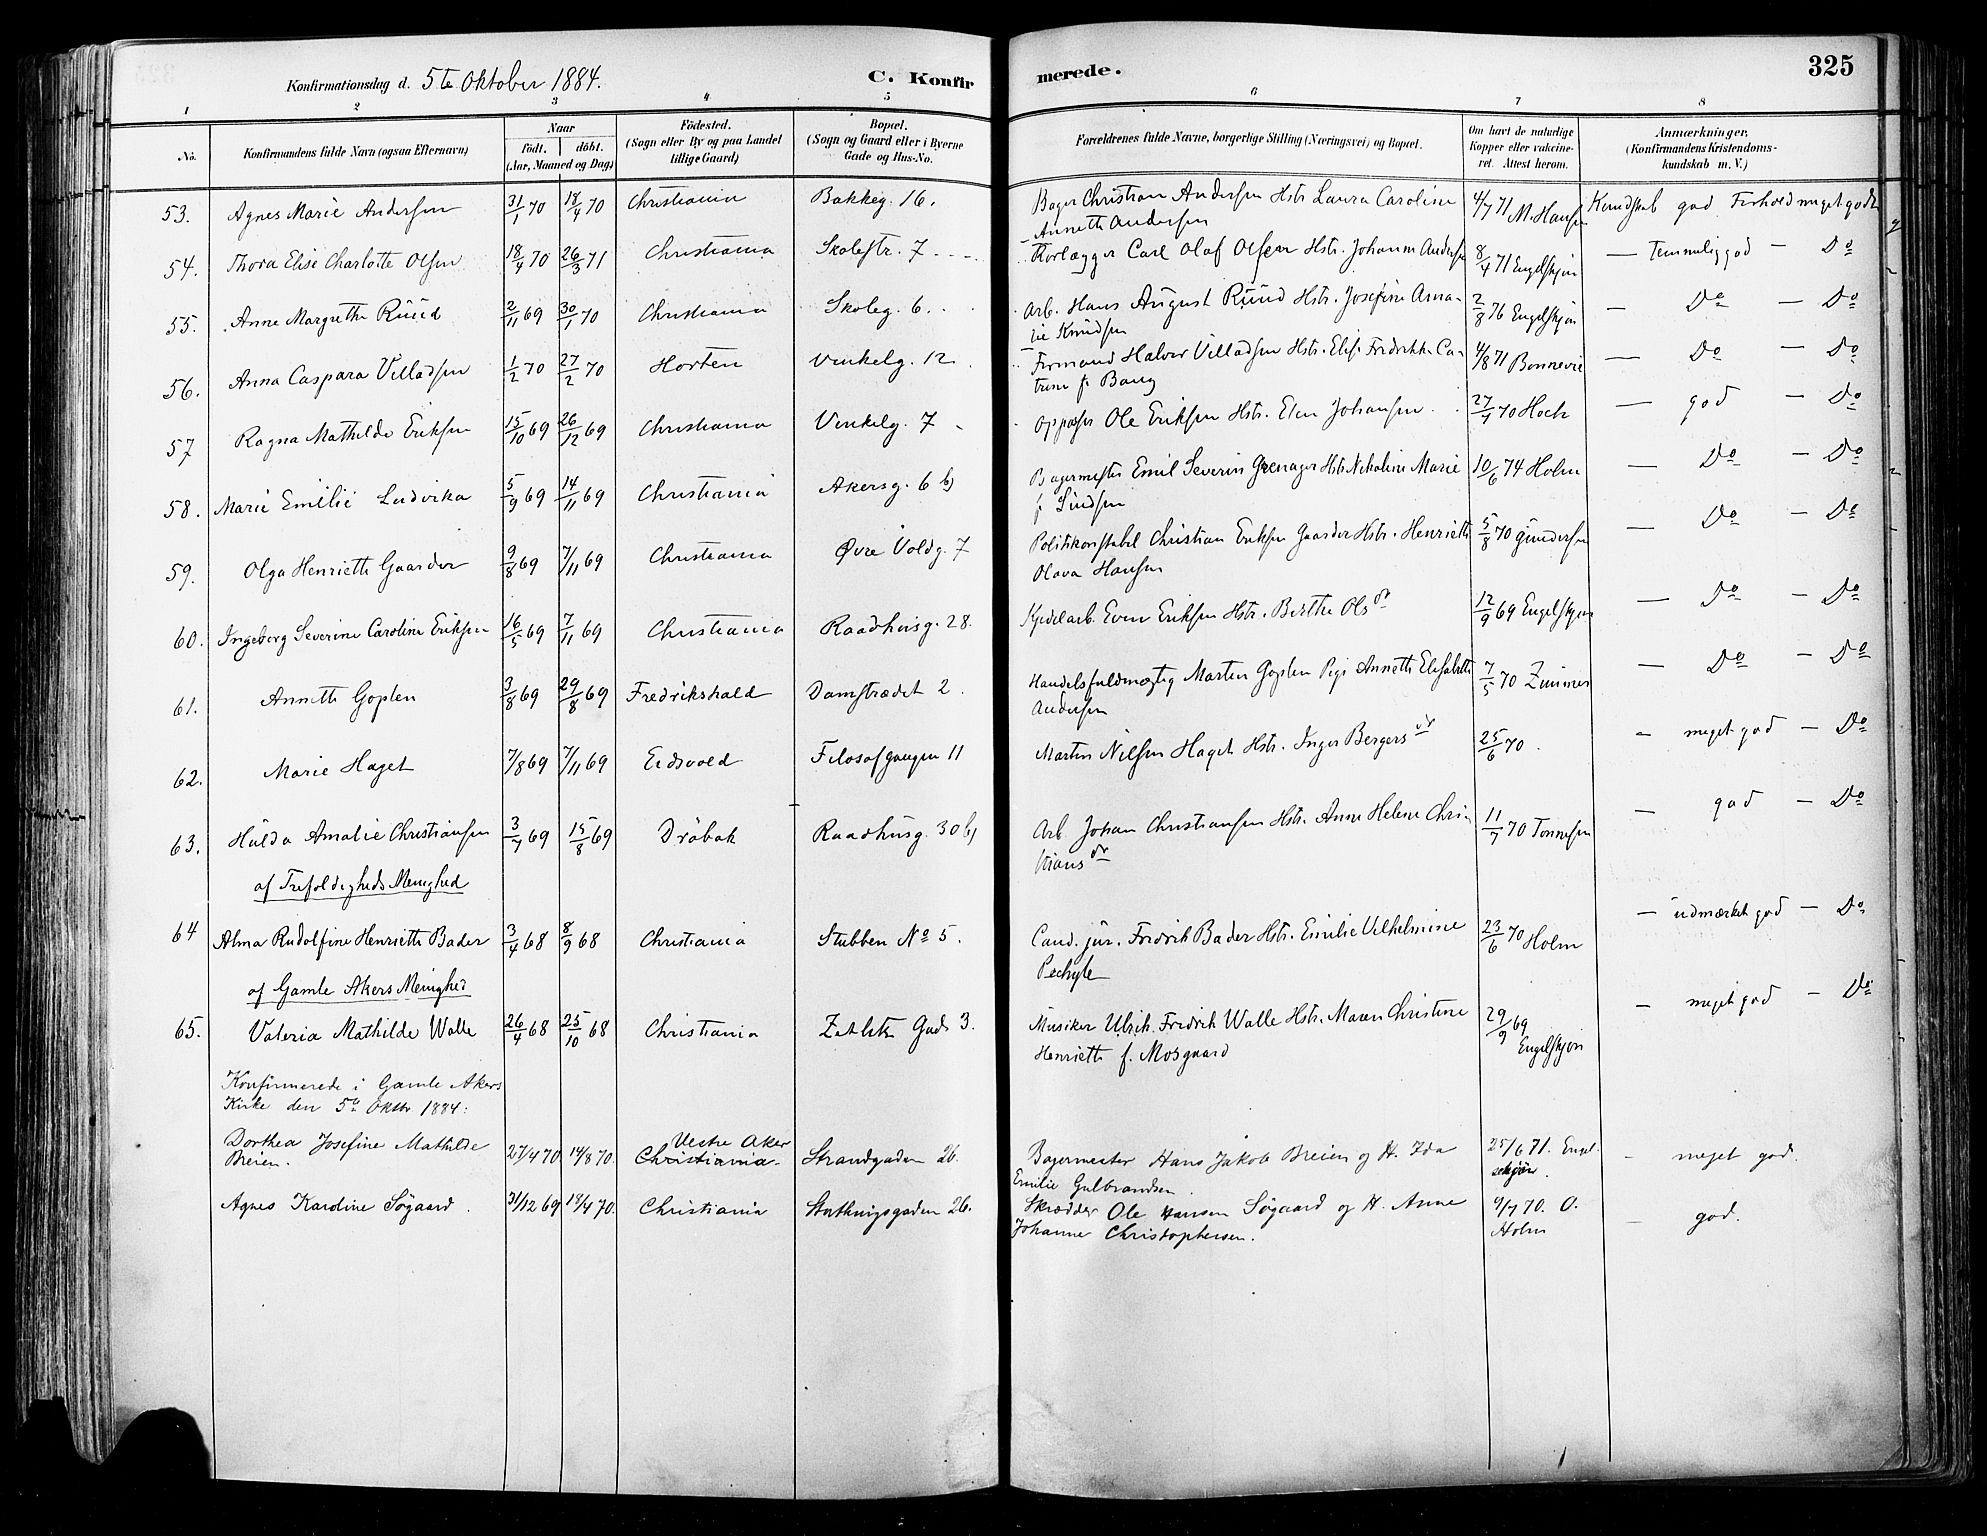 Konfirmationsdag d. 5te Oktober 1884. C. Konfir merede. 325
1 2 3 4 5 6 7 8
No. Konfirmandens fulde Navn (ogsaa Efternavn) Naar födt. döbt. (Aar, Maaned og Dag) Födested. (Sogn eller By og paa Landet tillige Gaard) Bopæl. (Sogn og Gaard eller i Byerne Gade og Hus-No. Forældrenes fulde Navne, borgerlige Stilling (Næringsvei) og Bopæl. Om havt de naturlige Kopper eller vakcineret. Attest herom. Anmærkninger, (Konfirmandens Kristendomskundskab m. V.)
53. Agnes Marie Andersen 31/1 70 18/4 70 Christiania Bakkeg. 16. Bager Christian Andersen Hstr Laura Caroline 4/7 71 M. Hansen Kundskab god Forhold meget godt
Annette Andersen
54. Thora Elise Charlotte Olsen 18/4 70 26/3 71 Christiania Skolestr. 7 Rorlægger Carl Olaf Olsen Hstr. Johanne Andersen 8/4 71 Engelskjøn — Temmelig god — Do
55. Anne Margrethe Ruud 2/11 69 30/1 70 Christiania Skoleg. 6. Arb. Hans August Ruud Hstr. Josefine Ama- 2/8 76 Engelskjøn — Do — Do
lie Knudsen
56. Anna Caspara Villadsen 1/2 70 27/2 70 Horten Vinkelg. 12 Formand Halvor Villadsen Hstr. Elise Fredrikke Ca- 4/8 71 Bonnevie — Do — Do
trine f. Bang
57 Ragna Mathilde Eriksen 15/10 69 26/12 69 Christiania Vinkelg. 7 Oppasser Ole Eriksen Hstr. Elen Johansen 27/4 70 Hoch — god — Do
58. Marie Emilie Ludvika 5/9 69 14/11 69 Christiania Akersg. 6 b) Bagermester Emil Severin Grenager Hstr Nikoline Marie 10/6 74 Holm — Do — Do
f. Lindsen
59. Olga Henriette Gaarder 9/8 69 7/11 69 Christiania Øvre Voldg. 7 Politikonstabel Christian Eriksen Gaarder Hstr. Henriette 5/8 70 Gundersen — Do — Do
Olava Hansen
60. Ingeborg Severine Caroline Eriksen 16/5 69 7/11 69 Christiania Raadhusg. 28. Kjedelarb. Even Eriksen Hstr. Berthe Olsdr 12/9 69 Engelskjøn — Do — Do
61. Annette Goplen 3/8 69 29/8 69 Fredrikshald Damstrædet 2. Handelsfuldmægtig Martin Goplen Pige Annette Elisabeth 7/5 70 Zimmer — Do — Do
Andersen
62. Marie Haget 7/8 69 7/11 69 Eidsvold Filosofgangen 11 Martin Nilsen Haget Hstr. Inger Bergersdr 25/6 70. — meget god — Do
63. Hulda Amalie Christiansen 3/7 69 15/8 69 Dröbak Raadhusg. 30 b) Arb. Johan Christiansen Hstr. Anne Helene Chri 11/7 70 Tönnesen — god — Do
stiansdr
af Trefoldigheds Menighed
64 Alma Rudolfine Henriette Bader 3/4 68 8/9 68 Christiania Stubben No 5. Cand. jur. Fredrik Bader Hstr. Emilie Vilhelmine 23/6 70 Holm — udmærket god — Do
Pechyle
af Gamle Akers Menighed
65. Valeria Mathilde Walle 26/4 68 25/10 68 Christiania Gade 3. Musiker Ulrich Fredrik Walle Hstr. Maren Christine 29/9 69 Engelskjøn — meget god — Do
Henriette f. Mosgaard
Konfirmerede i Gamle Akers
Kirke den 5te Oktbr 1884:
Dorthea Josefine Mathilde Breien. 27/4 70 14/8 70. Vestre Aker Christiania. Strandgaden 26. Bagermester Hans Jakob Breien og H. Ida 25/6 71. Engelskjøn. — meget god.
Emilie Gulbrandsen.
Agnes Karoline Søgaard. 31/12 69 18/4 70. Christiania Storthingsgaden 26. Skrædder Ole Hansen Søgaard og H. Anne 9/7 70. O. Holm — god.
Johanne Christophersen.